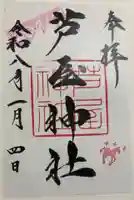 奉拝
芦屋神社
令和八年一月四日